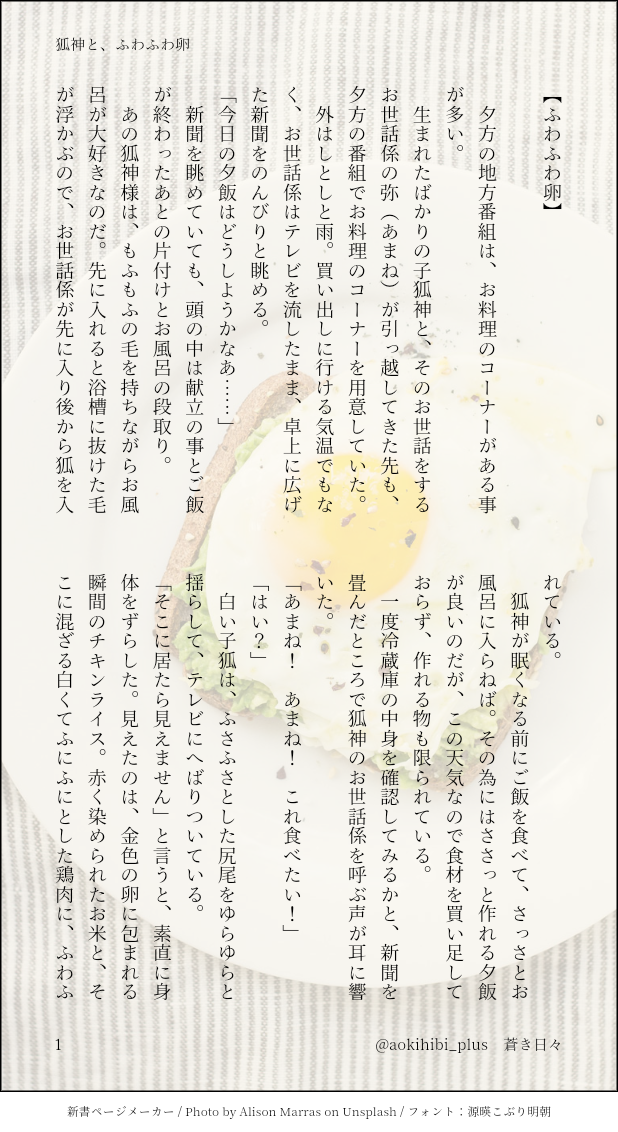 狐神と、ふわふわ卵
【ふわふわ卵】
夕方の地方番組は、お料理のコーナーがある事
が多い。
生まれたばかりの子狐神と、そのお世話をする
お世話係の弥（あまね）が引っ越してきた先も、
夕方の番組でお料理のコーナーを用意していた。
外はしとしと雨。買い出しに行ける気温でもな
く、お世話係はテレビを流したまま、卓上に広げ
た新聞をのんびりと眺める。
「今日の夕飯はどうしようかなあ……」
新聞を眺めていても、頭の中は献立の事とご飯
が終わったあとの片付けとお風呂の段取り。
あの狐神様は、もふもふの毛を持ちながらお風
呂が大好きなのだ。先に入れると浴槽に抜けた毛
が浮かぶので、お世話係が先に入り後から狐を入
れている。
狐神が眠くなる前にご飯を食べて、さっさとお
風呂に入らねば。その為にはささっと作れる夕飯
が良いのだが、この天気なので食材を買い足して
おらず、作れる物も限られている。
一度冷蔵庫の中身を確認してみるかと、新聞を
畳んだところで狐神のお世話係を呼ぶ声が耳に響
いた。
「あまね！　あまね！　これ食べたい！」
「はい？」
白い子狐は、ふさふさとした尻尾をゆらゆらと
揺らして、テレビにへばりついている。
「そこに居たら見えません」と言うと、素直に身
体をずらした。見えたのは、金色の卵に包まれる
瞬間のチキンライス。赤く染められたお米と、そ
こに混ざる白くてふにふにとした鶏肉に、ふわふ
1
@aokihibi_plus　蒼き日々
新書ページメーカー / Photo by Alison Marras on Unsplash / フォント：源暎こぶり明朝